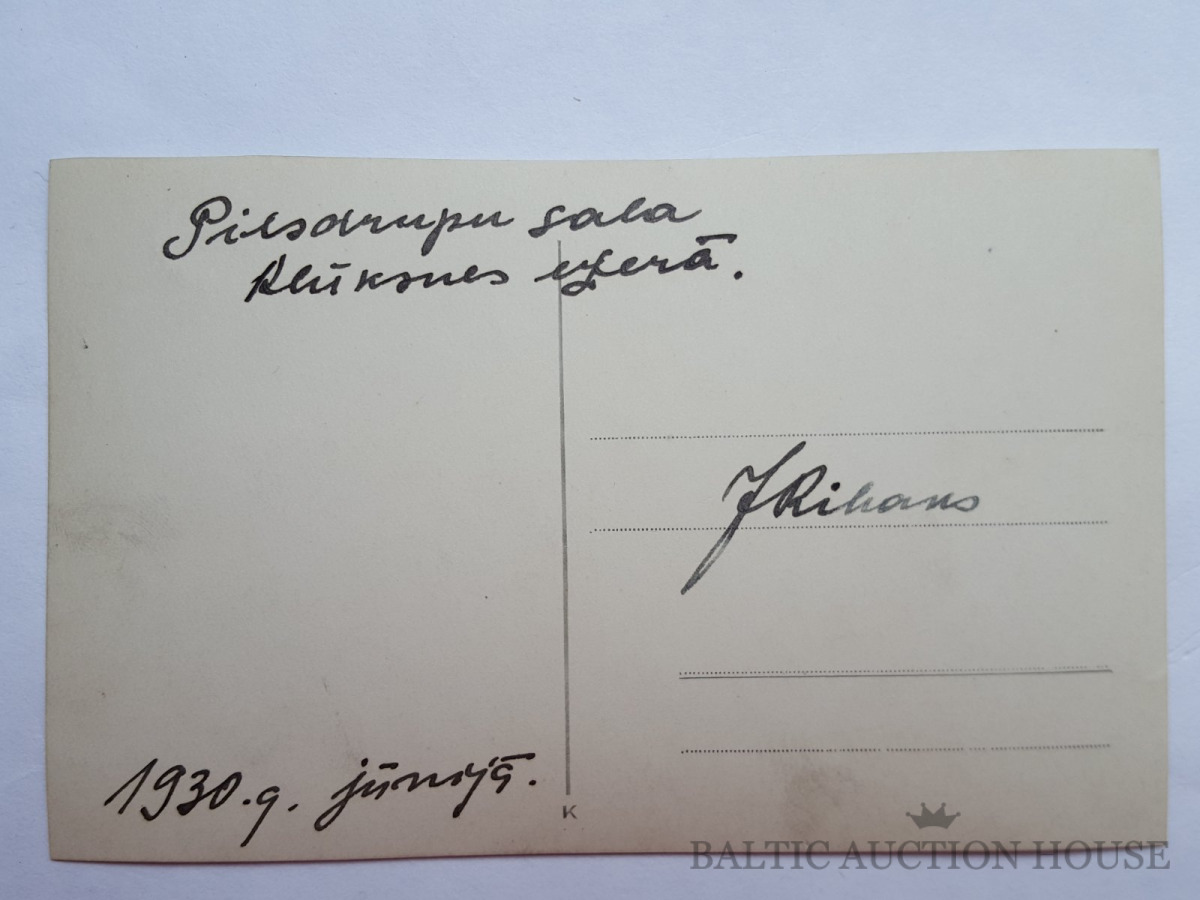 Pilsdrupu sala
Alūksnes ezerā.
JRibans
1930.g. jūnijā.
K
BALTIC AUCTION HOUSE